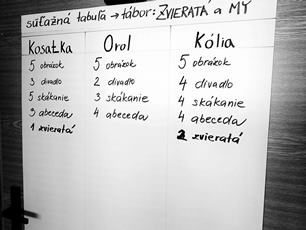 súťažná tabuľa → tábor: ZVIERATÁ a MY
Kosatka
5 obrázok
3 divadlo
5 skákanie
3 abeceda
1 zvieratá
Orol
5 obrázok
2 divadlo
3 skákanie
4 abeceda
Kólia
5 obrázok
4 divadlo
4 skákanie
4 abeceda
2 zvieratá